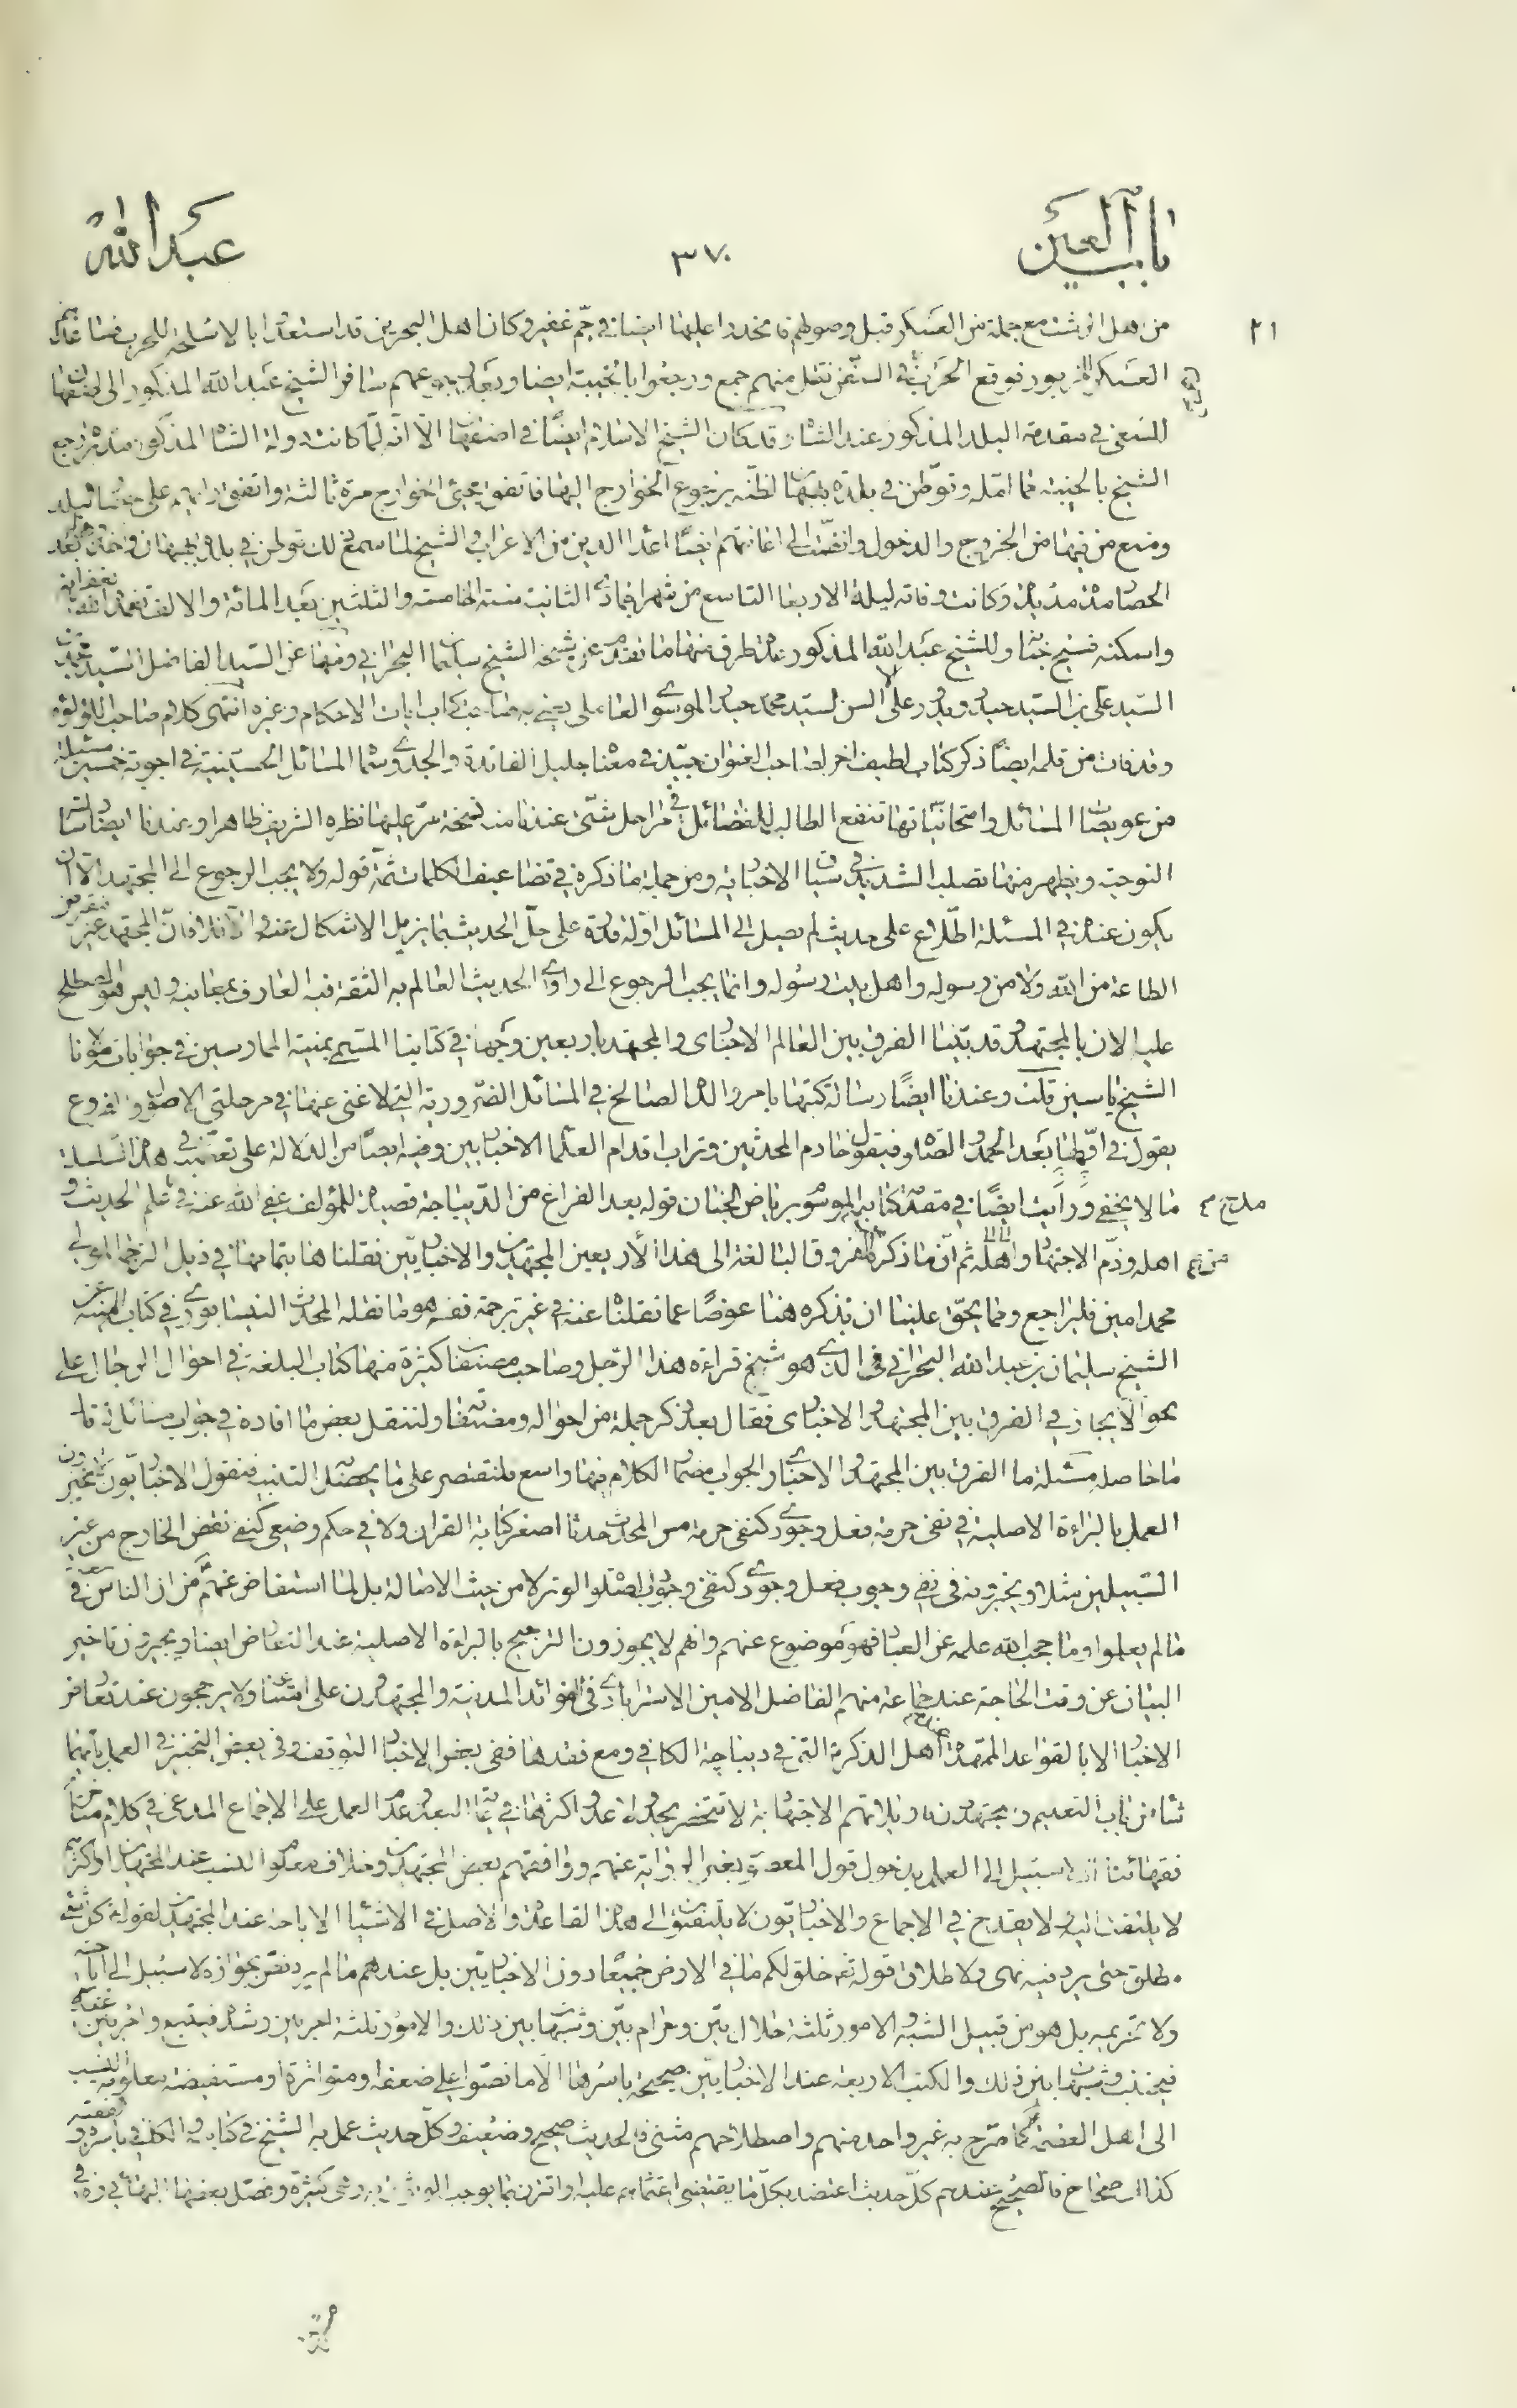 باب العين ٣٧٠ عبد الله
٢١
من اهل الرشت مع جملة من العسكر قبل وصولهم فانحدروا عليها ايضا في جم غفير وكان اهل البحرين قد استعدوا بالاسلحة للحرب فضا
العسكر المزبور فوقع الحرب في السفن فقتل منهم جمع ورجعوا بالخيبة ايضا وبعد عنهم سافر الشيخ عبد الله المذكور الى اصفهان
للسعي في مقدمة البلد المذكور عند الشاه وقد كان الشيخ الاسلام ايضا في اصفهان الا انه لما كانت دولة الشاه المذكور مدبرة رجع
الشيخ بالخيبة مما امله وتوطن في بلدة بهبهان لظنه برجوع الخوارج اليها فاتفق مجيئ الخوارج مرة ثالثة واتفق رايهم على حصار البلد
ومنع من فيها من الخروج والدخول وانضمت الى اعانتهم ايضا اعداء الدين من الاعراب والشيخ لما سمع ذلك توطن في بلاد بهبهان واخذت بعد
الحصار مدة مديدة وكانت وفاته ليلة الاربعا التاسع من شهر جمادى الثانية سنة الخامسة والثلثين بعد المائة والالف تغمده الله بغفرانه
واسكنه فسيح جنانه وللشيخ عبد الله المذكور عدة طرق منها ما تقدم عن شيخه الشيخ سليمان البحراني ومنها عن السيد الفاضل السيد محمد بن
السيد علي بن السيد حيدر ويدور على السن السيد محمد حيدر الموسوي العاملي يعني به صاحب كتاب ايات الاحكام وغيره انتهى كلام صاحب اللؤلؤة
وقد فات من قلمه ايضا ذكر كتاب لطيف اخر لصاحب العنوان جيد في معناه جليل الفائدة والجدوى سماه المسائل الحسينية في اجوبة خمسين مسئلة
من عويصات المسائل وامتحانياتها تنفع الطالب للفضائل في مراحل شتى عندنا منه نسخة مر عليها نظره الشريف ظاهرا وعندنا ايضا رسالة
النوحية ويظهر منها تصلبه الشديد في سياق الاخبارية ومن جملة ما ذكره في تضاعيف الكلمات ثمة قوله ولا يجب الرجوع الى المجتهد الا ان
يكون عنده في المسئلة اطلاع على حديث لم يصل الى المسائل او له قدرة على حل الحديث بما يزيل الاشكال عنه والا فلا فان المجتهد غير مفترض
الطاعة من الله ولا من رسوله واهل بيت رسوله وانما يجب الرجوع الى راوي الحديث العالم به الثقة فيه العارف بمعانيه وليس هو المصطلح
عليه الان بالمجتهد وقد بينا الفرق بين العالم الاخباري والمجتهد باربعين وجها في كتابنا المسمى بمنية الممارسين في جوابات مولانا
الشيخ ياسين قلت وعندنا ايضا رسالة كتبها بامر والده الصالح في المسائل الضرورية التي لا غنى عنها في مرحلتي الاصول والفروع
يقول في اولها بعد الحمد والصلاة فيقول خادم المحدثين وتراب اقدام العلماء الاخباريين وفيه ايضا من الدلالة على تعصبه في هذا السلسلة
ما لا يخفى ورايت ايضا في مقدمة كتابه الموسوم برياض الجنان قوله بعد الفراغ من الديباجة قصيدة للمؤلف عفى الله عنه في مدح علم الحديث و
اهله وذم الاجتهاد واهله ثم ان ما ذكره من الفروق البالغة الى هذا الاربعين بين المجتهدين والاخباريين نقلناها بتمامها في ذيل ترجمة المولى
محمد امين فليراجع ومما يحق علينا ان نذكره هنا عوضا عما نقلناه عنه في غير ترجمة نفسه هو ما نقله المحدث النيسابوري في كتاب المنية عن
الشيخ سليمان بن عبد الله البحراني الذي هو شيخ قراءة هذا الرجل وصاحب مصنفات كثيرة منها كتاب البلغة في احوال الرجال على
نحو الايجاز في الفرق بين المجتهد والاخباري فقال بعد ذكر جملة من احواله ومصنفاته ولننقل بعض ما افاده في جواب مسائل
ما حاصله مسئلة ما الفرق بين المجتهد والاخباري والجواب مضمار الكلام فيها واسع فلنقتصر على ما يحصل التنبيه فنقول الاخباريون لا يجيزون
العمل بالبراءة الاصلية في نفي حرمة فعل وجودي كنفي حرمة مس المحدث حدثا اصغر كتابة القران ولا في حكم وضعي كنفي نقض الخارج من غير
السبيلين مثلا ويجيزونه في نفي وجوب فعل وجودي كنفي وجوب صلوة الوتر لا من حيث الاصالة بل لما استفاض عنهم من ان الناس في سعة
ما لم يعلموا وما حجب الله علمه عن العباد فهو موضوع عنهم وانهم لا يجوزون الترجيح بالبراءة الاصلية عند التعارض ايضا ويجيزون تاخير
البيان عن وقت الحاجة عند جماعة منهم الفاضل الامين الاسترابادي في الفوائد المدنية والمجتهدون على امتناعه ولا يرجحون عند تعارض
الاخبار الا بالقواعد الممهدة عن اهل الذكر المثبتة في ديباجة الكافي ومع فقدها ففي بعض الاخبار التوقف وفي بعض التخيير في العمل بايهما
شاء من باب التسليم والمجتهدون ترجيحاتهم الاجتهادية لا تنحصر بحد ولا عد واكثرها في غاية البعد وعدم العمل على الاجماع المدعى في كلام متاخري
فقهائنا اذ لا سبيل الى العلم بدخول قول المعصوم بغير الرواية عنهم ووافقهم بعض المجتهدين وخلاف معلوم النسب عند المجتهدين او اكثرهم
لا يلتفت اليه ولا يقدح في الاجماع والاخباريون لا يلتفتون الى هذا القاعدة والاصل في الاشياء الاباحة عند المجتهدين لقوله كل شيء
مطلق حتى يرد فيه نهى ولاطلاق قوله تعه خلق لكم ما في الارض جميعا دون الاخباريين بل عندهم ما لم يرد نص بجوازه لا سبيل الى اباحته
ولا تحريمه بل هو من قبيل الشبه والامور ثلثة حلال بين وحرام بين وشبهات بين ذلك والامور ثلثة امر بين رشده فيتبع وامر بين غيه
فيجتنب وشبهات بين ذلك والكتب الاربعة عند الاخباريين صحيحة باسرها الا ما نصوا على ضعفه او متواترة او مستفيضة معلومة النسب
الى اهل العصمة كما صرح به غير واحد منهم واصطلاحهم مثنى فالحديث صحيح وضعيف وكل حديث عمل به الشيخ في كتابيه والكافي باسره و
كذا صحاح فالصحيح عندهم كل حديث اعتضد بكل ما يقتضي اعتمادهم عليه او اقترن بما يوجب الوثوق به وهي كثيرة وفصل بعضها البهائي ره في